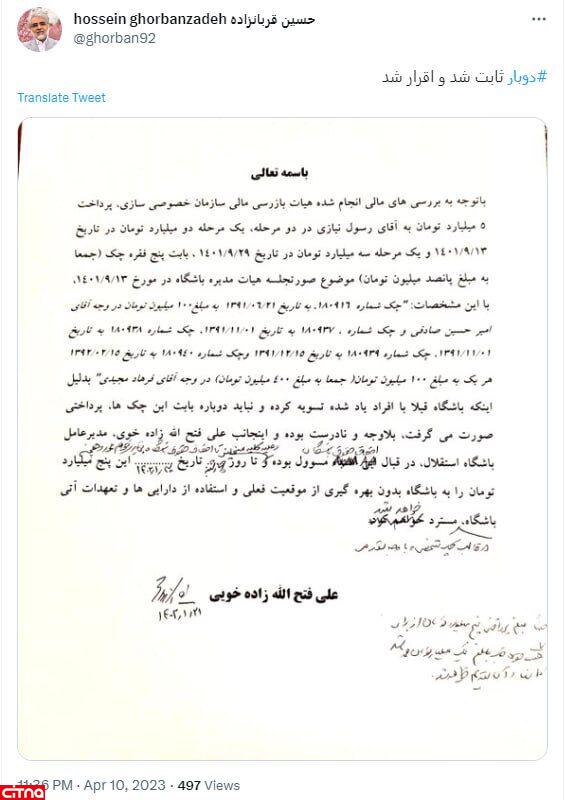 hossein ghorbanzadeh حسین قربانزاده
@ghorban92
#دوبار ثابت شد و اقرار شد
Translate Tweet
باسمه تعالی
باتوجه به بررسی های مالی انجام شده هیات بازرسی مالی سازمان خصوصی سازی، پرداخت
۵ میلیارد تومان به آقای رسول نیازی در دو مرحله، یک مرحله دو میلیارد تومان در تاریخ
۱۴۰۱/۹/۱۳ و یک مرحله سه میلیارد تومان در تاریخ ۱۴۰۱/۹/۲۹، بابت پنج فقره چک (جمعا
به مبلغ پانصد میلیون تومان) موضوع صورتجلسه هیات مدیره باشگاه در مورخ ۱۴۰۱/۹/۱۳،
با این مشخصات: "چک شماره ۱۸۰۹۱۶، به تاریخ ۱۳۹۱/۰۶/۲۱ به مبلغ ۱۰۰ میلیون تومان در وجه آقای
امیر حسین صادقی و چک شماره ، ۱۸۰۹۳۷ به تاریخ ۱۳۹۱/۱۱/۰۱، چک شماره ۱۸۰۹۳۸ به تاریخ
۱۳۹۱/۱۱/۰۱، چک شماره ۱۸۰۹۳۹ به تاریخ ۱۳۹۱/۱۲/۱۵ وچک شماره ۱۸۰۹۴۰ به تاریخ ۱۳۹۲/۰۲/۱۵
هر یک به مبلغ ۱۰۰ میلیون تومان( جمعا به مبلغ ۴۰۰ میلیون تومان) در وجه آقای فرهاد مجیدی" بدلیل
اینکه باشگاه قبلا با افراد یاد شده تسویه کرده و نباید دوباره بابت این چک ها، پرداختی
صورت می گرفت، بلاوجه و نادرست بوده و اینجانب علی فتح الله زاده خوی، مدیرعامل
باشگاه استقلال، در قبال این مسوول بوده و تا روز تاریخ ............ این پنج میلیارد
۱۴۰۲/۰۱/۳۱
تومان را به باشگاه بدون بهره گیری از موقعیت فعلی و استفاده از دارایی ها و تعهدات آتی
خواهد شد
باشگاه، مسترد خواهم کرد.
علی فتح الله زاده خویی
۱۴۰۲/۱/۲۱
11:36 PM · Apr 10, 2023 · 497 Views
citna